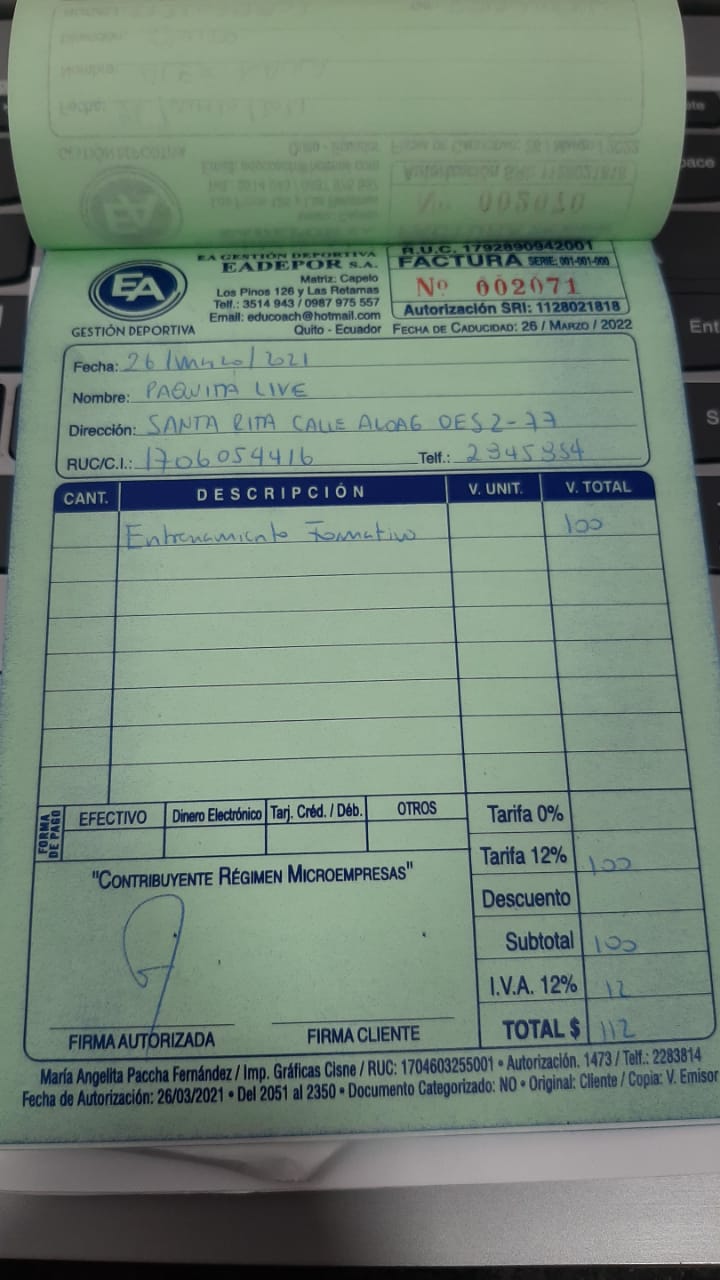 Nº 002070
EA
GESTIÓN DEPORTIVA
EA GESTIÓN DEPORTIVA
EADEPOR S.A.
Matriz: Capelo
Los Pinos 126 y Las Retamas
Telf.: 3514 943 / 0987 975 557
Email: educoach@hotmail.com
Quito - Ecuador
R.U.C. 1792890942001
FACTURA SERIE: 001-001-000
Nº 002071
Autorización SRI: 1128021818
FECHA DE CADUCIDAD: 26 / MARZO / 2022
Fecha: 26/marzo/2021
Nombre: PAQUITA LIVE
Dirección: SANTA RITA CALLE ALOAG OES2-77
RUC/C.I.: 1706054416 Telf.: 2845354
CANT. DESCRIPCIÓN V. UNIT. V. TOTAL
Entrenamiento Formativo 100
FORMA DE PAGO
EFECTIVO Dinero Electrónico Tarj. Créd. / Déb. OTROS
Tarifa 0%
Tarifa 12% 100
Descuento
Subtotal 100
I.V.A. 12% 12
TOTAL $ 112
"CONTRIBUYENTE RÉGIMEN MICROEMPRESAS"
FIRMA AUTORIZADA FIRMA CLIENTE
María Angelita Paccha Fernández / Imp. Gráficas Cisne / RUC: 1704603255001 • Autorización. 1473 / Telf.: 2283814
Fecha de Autorización: 26/03/2021 • Del 2051 al 2350 • Documento Categorizado: NO • Original: Cliente / Copia: V. Emisor